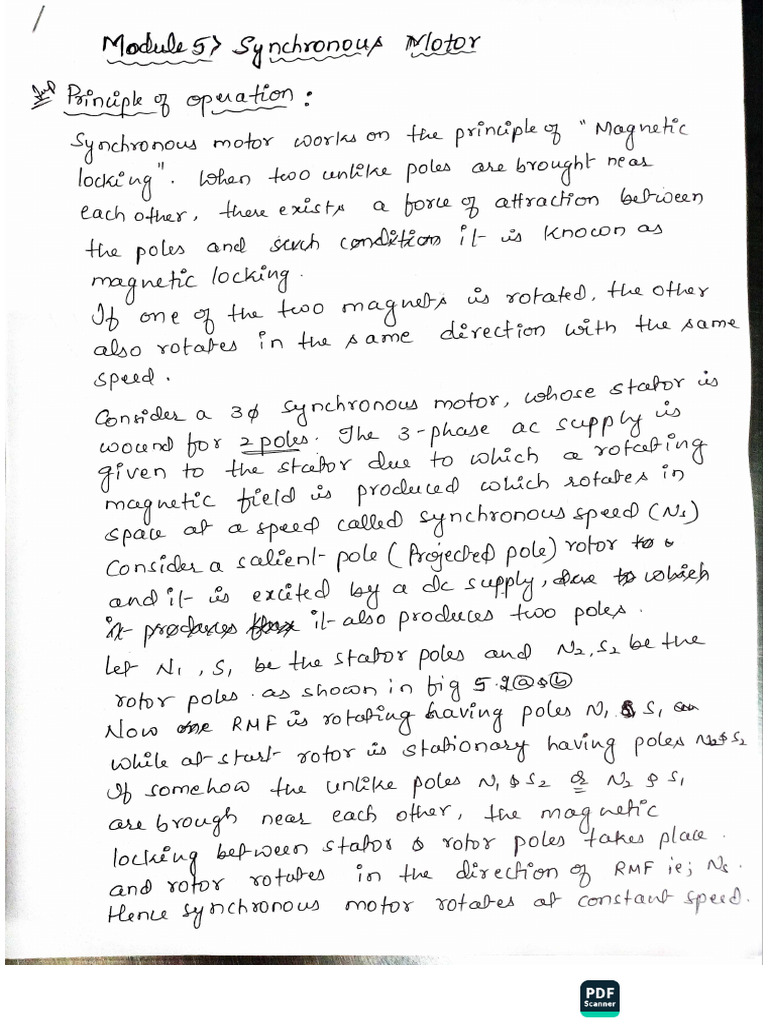 Module 5> Synchronous Motor
Imp Principle of operation :
Synchronous motor works on the principle of "Magnetic
locking". When two unlike poles are brought near
each other, there exists a force of attraction between
the poles and such condition it is known as
magnetic locking.
If one of the two magnets is rotated, the other
also rotates in the same direction with the same
speed.
Consider a 3ϕ synchronous motor, whose stator is
wound for 2 poles. The 3-phase ac supply is
given to the stator due to which a rotating
magnetic field is produced which rotates in
space at a speed called synchronous speed (Ns)
Consider a salient-pole (Projected pole) rotor to
and it is excited by a dc supply, due to which
it produces flux it also produces two poles.
Let N1, S1 be the stator poles and N2, S2 be the
rotor poles. as shown in fig 5.2 ⓐ & ⓑ
Now RMF is rotating having poles N1 & S1
while at start rotor is stationary having poles N2 & S2
If somehow the unlike poles N1 & S2 or N2 & S1
are brough near each other, the magnetic
locking between stator & rotor poles takes place.
and rotor rotates in the direction of RMF ie; Ns.
Hence synchronous motor rotates at constant speed.
PDF
Scanner